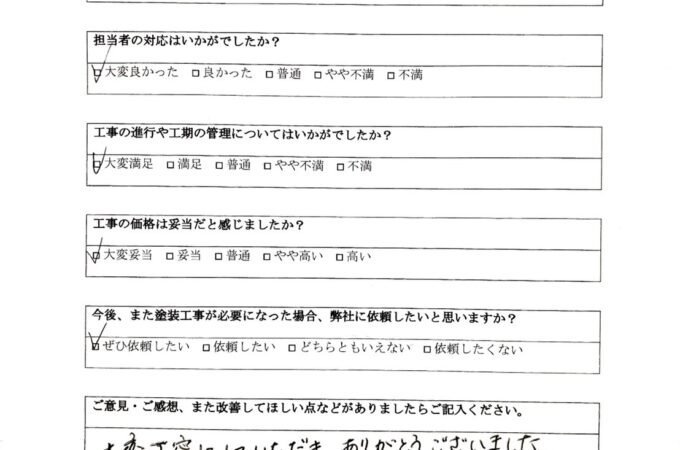 担当者の対応はいかがでしたか？
□大変良かった □良かった □普通 □やや不満 □不満
工事の進行や工期の管理についてはいかがでしたか？
□大変満足 □満足 □普通 □やや不満 □不満
工事の価格は妥当だと感じましたか？
□大変妥当 □妥当 □普通 □やや高い □高い
今後、また塗装工事が必要になった場合、弊社に依頼したいと思いますか？
□ぜひ依頼したい □依頼したい □どちらともいえない □依頼したくない
ご意見・ご感想、また改善してほしい点などがありましたらご記入ください。
大変丁寧にしていただき ありがとうございました